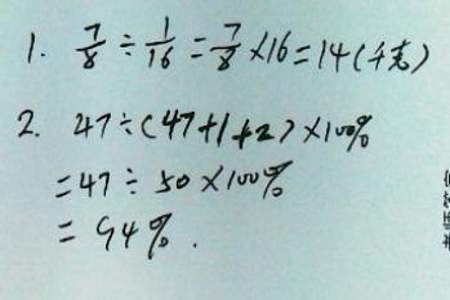 1. 7/8 ÷ 1/16 = 7/8 × 16 = 14(千克)
2. 47÷(47+1+2)×100%
=47÷50×100%
=94%.